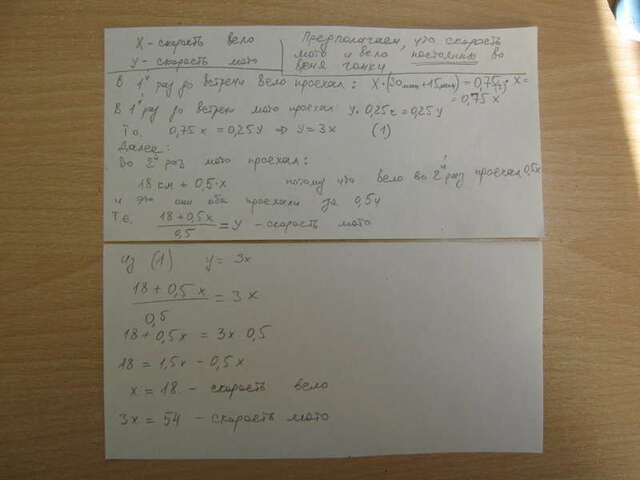 X - скорость вело
Y - скорость мото
Предполагаем, что скорость
мото и вело постоянны во
время гонки
В 1й раз до встречи вело проехал: X·(30мин+15мин) = 0,75ч·X =
= 0,75X
В 1й раз до встречи мото проехал Y·0,25ч = 0,25Y
Т.о. 0,75X = 0,25Y ⇒ Y = 3X (1)
Далее:
Во 2й раз мото проехал:
18 км + 0,5·X потому что вело во 2й раз проехал 0,5X
и это они оба проехали за 0,5ч
Т.е. (18 + 0,5X)/0,5 = Y - скорость мото
из (1) Y = 3X
(18 + 0,5X)/0,5 = 3X
18 + 0,5X = 3X·0,5
18 = 1,5X - 0,5X
X = 18 - скорость вело
3X = 54 - скорость мото